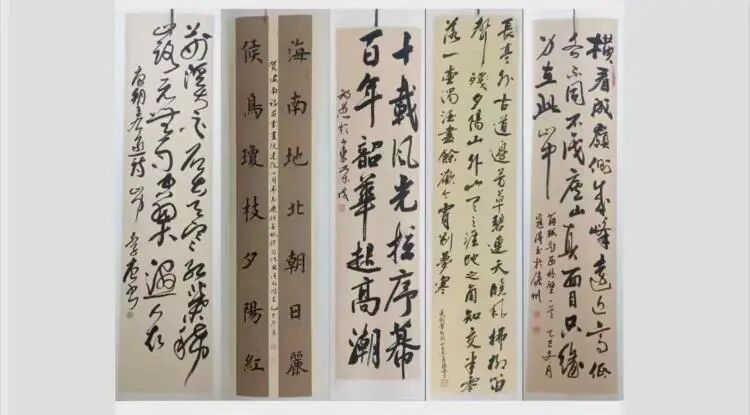 横看成嶺側成峰遠近高低
各不同不識廬山真面目只緣
身在此山中
長亭外古道邊芳草碧連天晚風拂柳笛
聲殘夕陽山外山天之涯地之角知交半零
落一壺濁酒盡餘歡今宵別夢寒
十載風光拉序幕
百年韶華起高潮
海南地北朝日麗
候鳥瓊枝夕陽紅
荊溪白石出天寒紅葉稀
山路元無雨空翠濕人衣